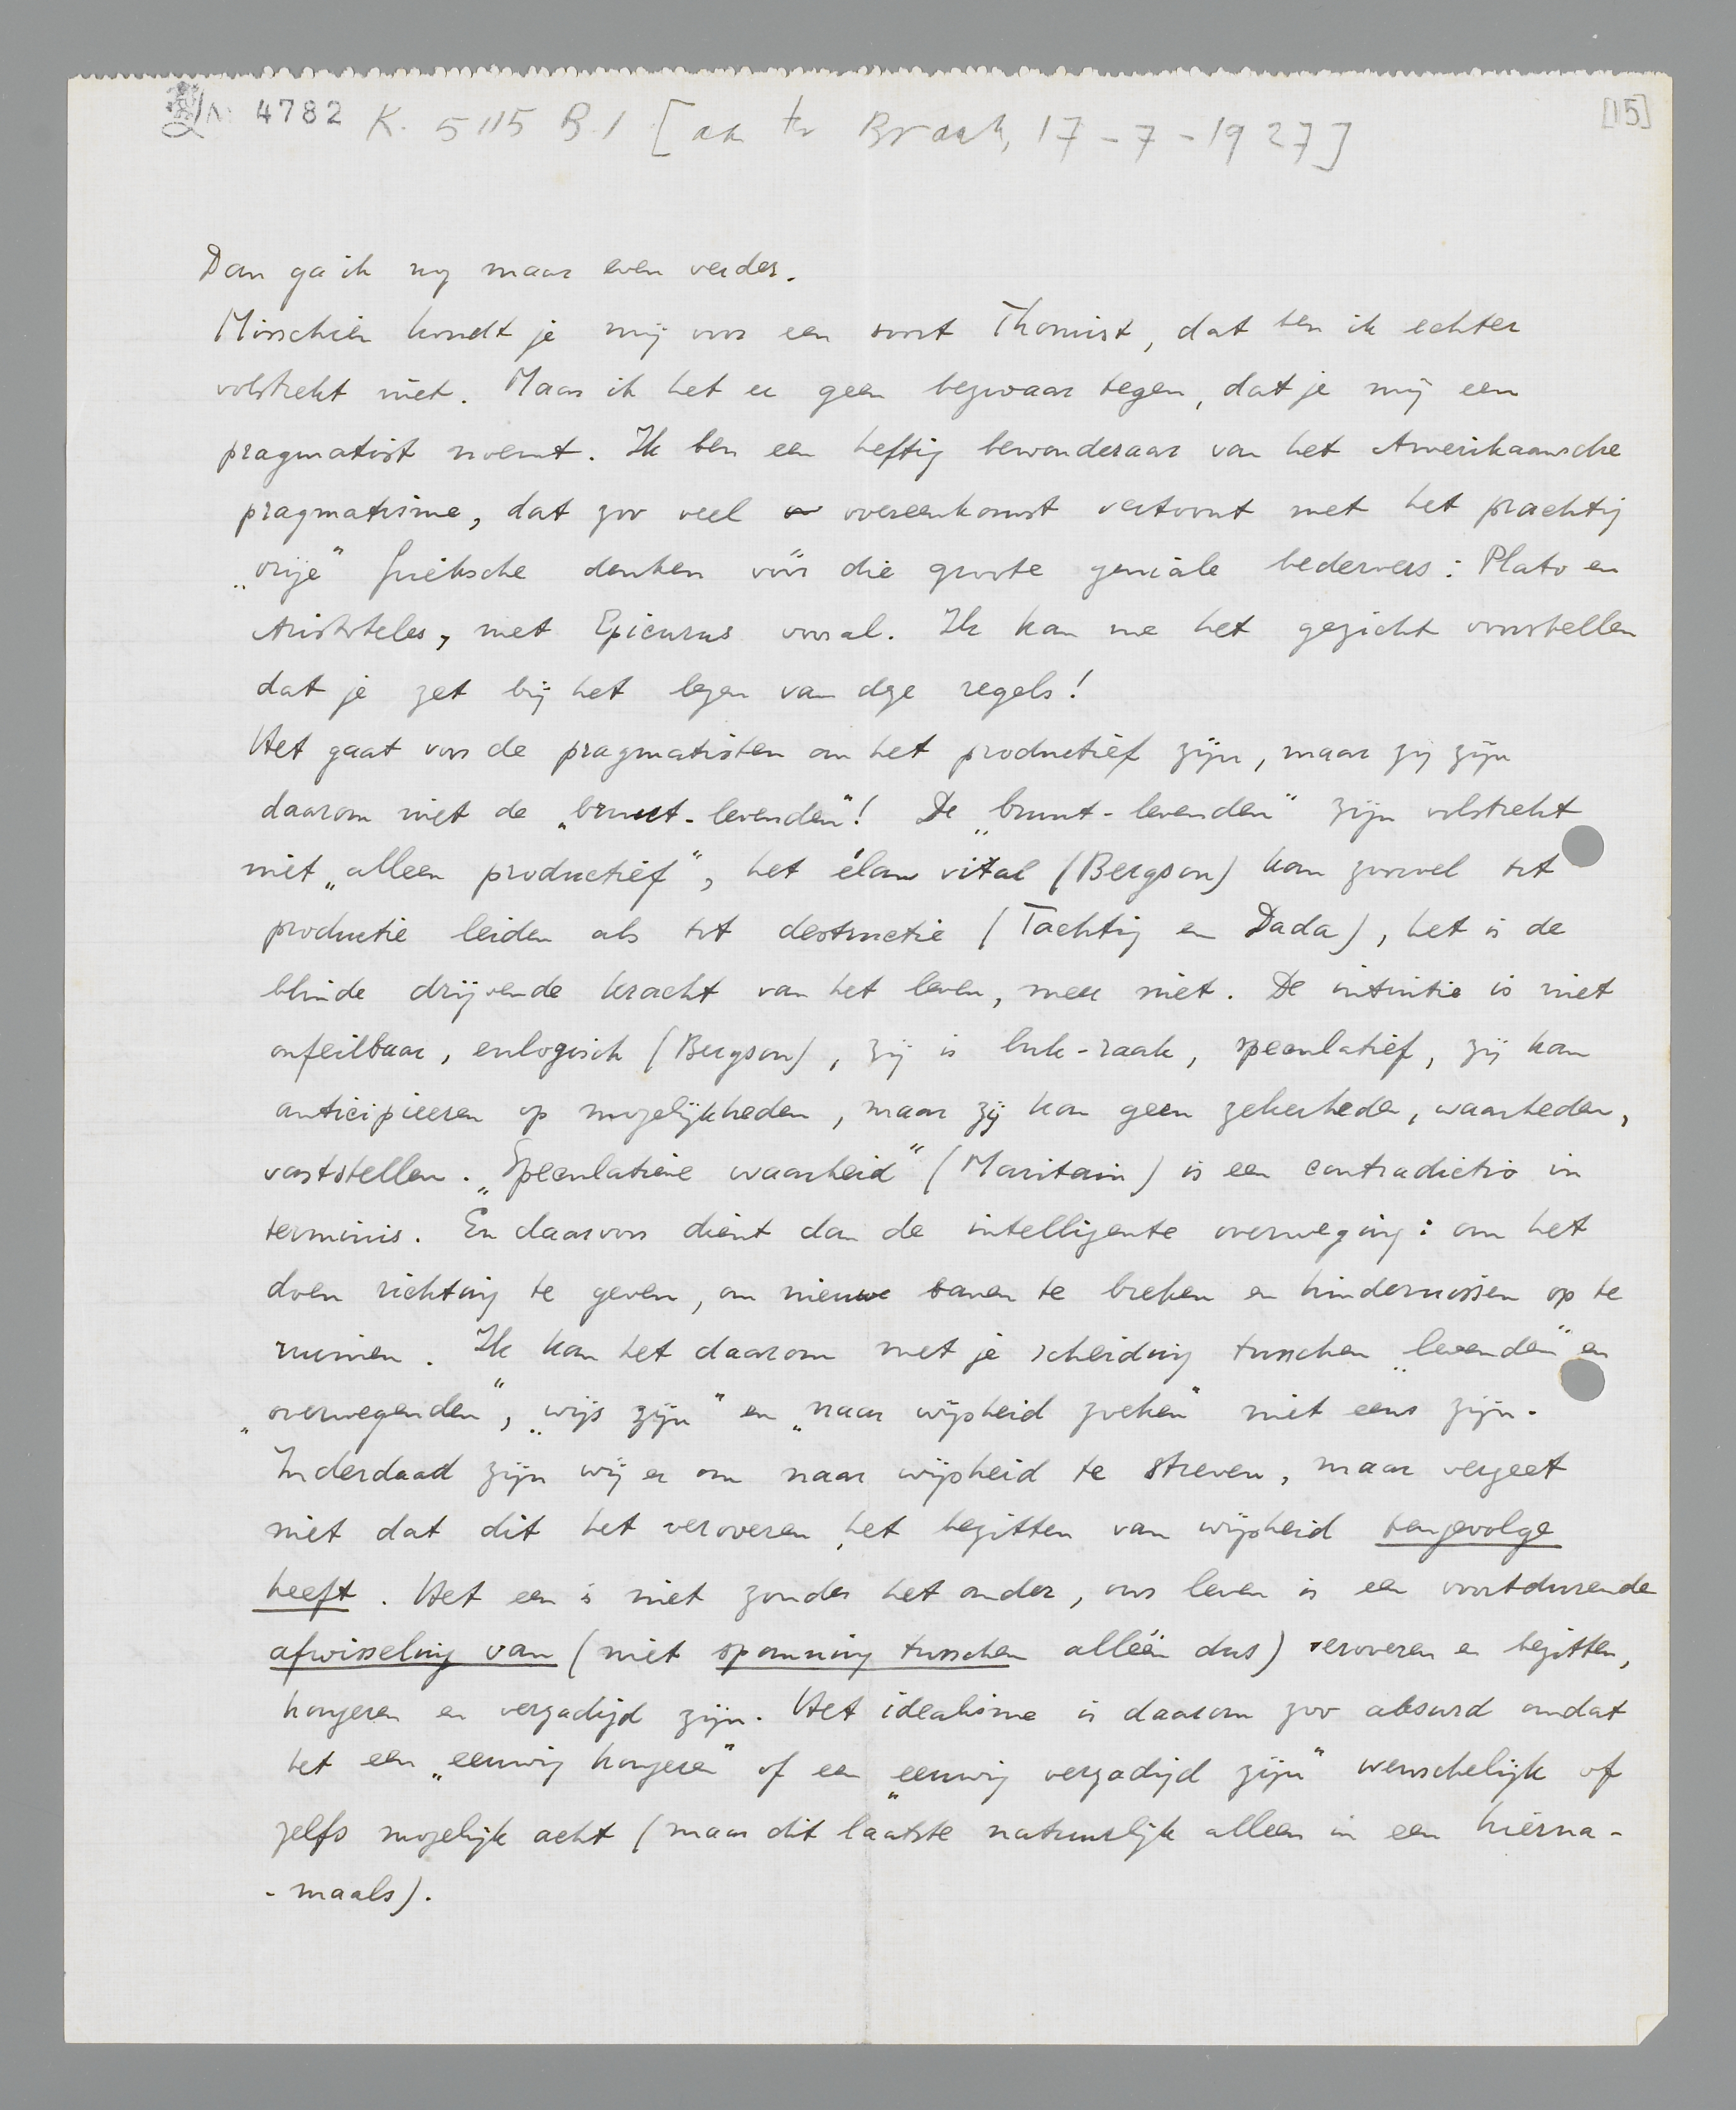 4782 K. 5115 B.1 [aan ter Braak, 17-7-1927]
[15]
Dan ga ik nog maar even verder.
Misschien houdt je mij voor een soort Thomist, dat ben ik echter
volstrekt niet. Maar ik heb er geen bezwaar tegen, dat je mij een
pragmatist noemt. Ik ben een heftig bewonderaar van het Amerikaansche
pragmatisme, dat zoo veel overeenkomst vertoont met het prachtig
„vrije" Grieksche denken vóór die groote geniale bedervers: Plato en
Aristoteles, met Epicurus vooral. Ik kan me het gezicht voorstellen
dat je zet bij het lezen van deze regels!
Het gaat voor de pragmatisten om het productief zijn, maar zij zijn
daarom niet de „bruut-levenden"! De „bruut-levenden" zijn volstrekt
niet „alleen productief", het élan vital (Bergson) kan zoowel tot
productie leiden als tot destructie (Tachtig en Dada), het is de
blinde drijvende kracht van het leven, meer niet. De intuïtie is niet
onfeilbaar, enlogisch (Bergson), zij is luk-raak, speculatief, zij kan
anticipieeren op mogelijkheden, maar zij kan geen zekerheden, waarheden,
vaststellen. „Speculatieve waarheid" (Maritain) is een contradictio in
terminis. En daarvoor dient dan de intelligente overweging: om het
doen richting te geven, om nieuwe banen te breken en hindernissen op te
ruimen. Ik kan het daarom met je scheiding tusschen „levenden" en
„overwegenden", „wijs zijn" en „naar wijsheid zoeken" niet eens zijn.
Inderdaad zijn wij er om naar wijsheid te streven, maar vergeet
niet dat dit het veroveren, het bezitten van wijsheid tengevolge
heeft. Het een is niet zonder het ander, ons leven is een voortdurende
afwisseling van (niet spanning tusschen alléén dus) veroveren en bezitten,
hongeren en verzadigd zijn. Het idealisme is daarom zoo absurd omdat
het een „eeuwig hongeren" of een „eeuwig verzadigd zijn" wenschelijk of
zelfs mogelijk acht (maar dit laatste natuurlijk alleen in een hierna-
-maals).